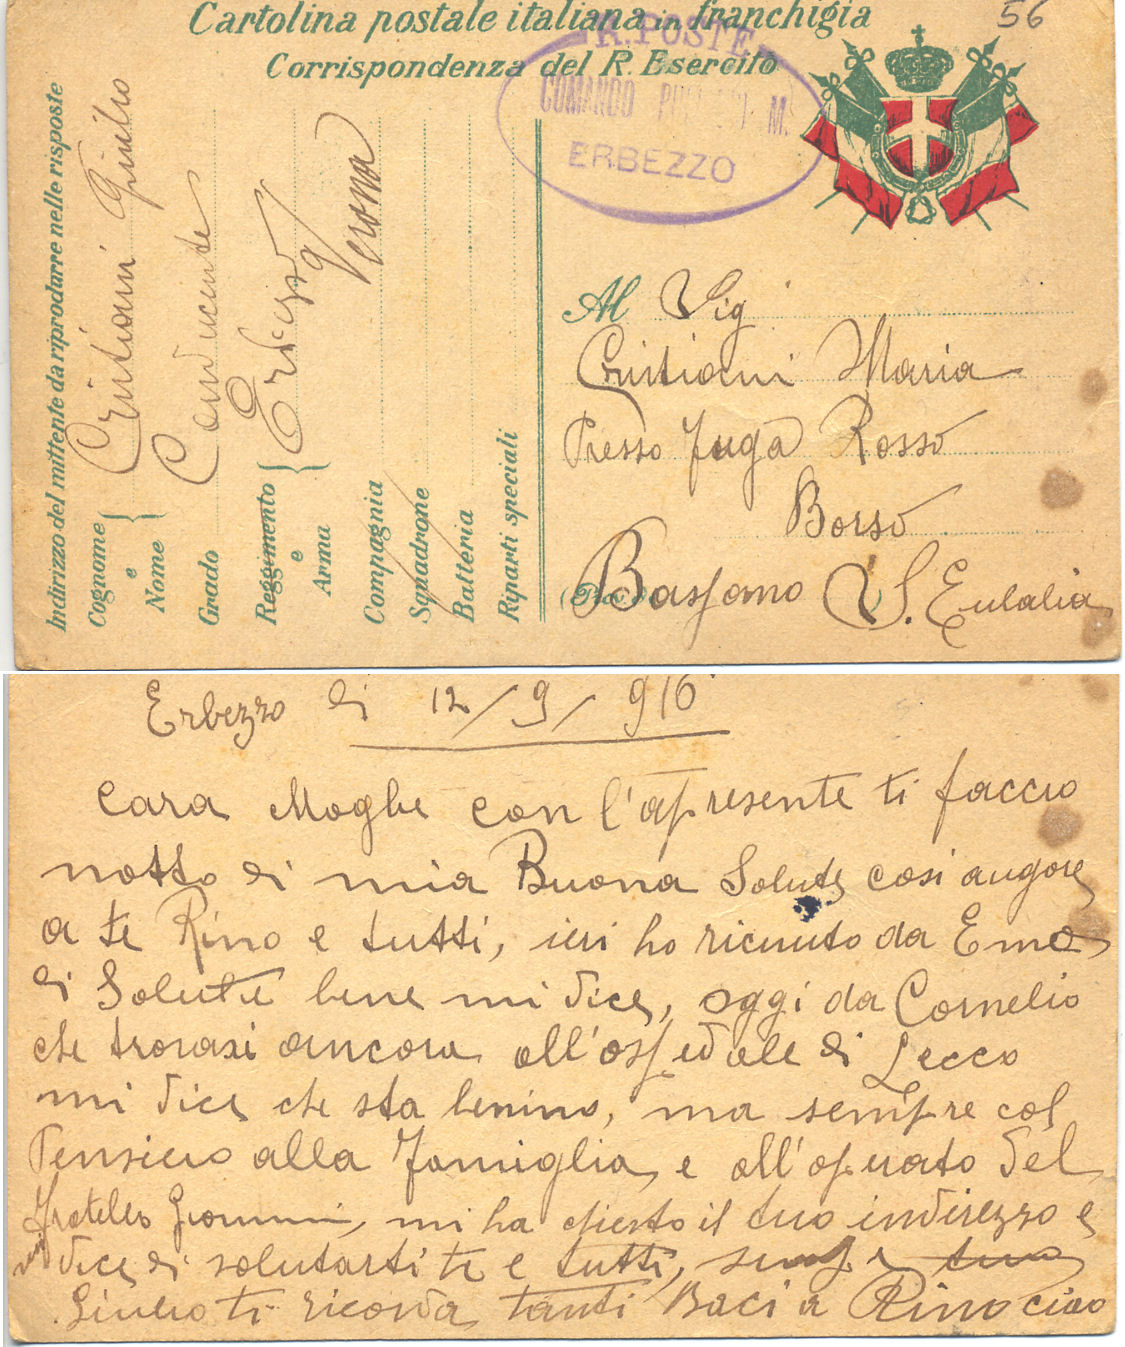 Cartolina postale italiana in franchigia
Corrispondenza del R. Esercito
56
R. POSTE
COMANDO M.
ERBEZZO
Indirizzo del mittente da riprodurre nelle risposte
Cognome e Nome { Cristiani Giulio
Grado Conducente
Reggimento e Arma { Erbezzo
Verona
Compagnia
Squadrone
Batteria
Riparti speciali
Al Sig
Cristiani Maria
Presso Fuga Rosso
Borso
Bassano S. Eulalia
Erbezzo di 12/9/916
Cara Moghe con l'apresente ti faccio
notto di mia Buona Salute cosi augore
a te Rino e tutti, ieri ho ricevuto da Ema
di Salute bene mi dice, oggi da Cornelio
che trovasi ancora all'ospedale di Lecco
mi dice che sta benino, ma sempre col
Pensiero alla Famiglia e all'operato del
Fratello Giovanni, mi ha chiesto il tuo indirezzo e
mi dice di salutarti te e tutti, sempre tuo
Giulio ti ricorda tanti Baci a Rino ciao